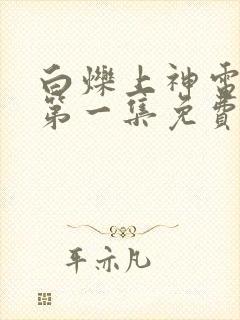 白爍上神雷
第一集免費
平亦凡